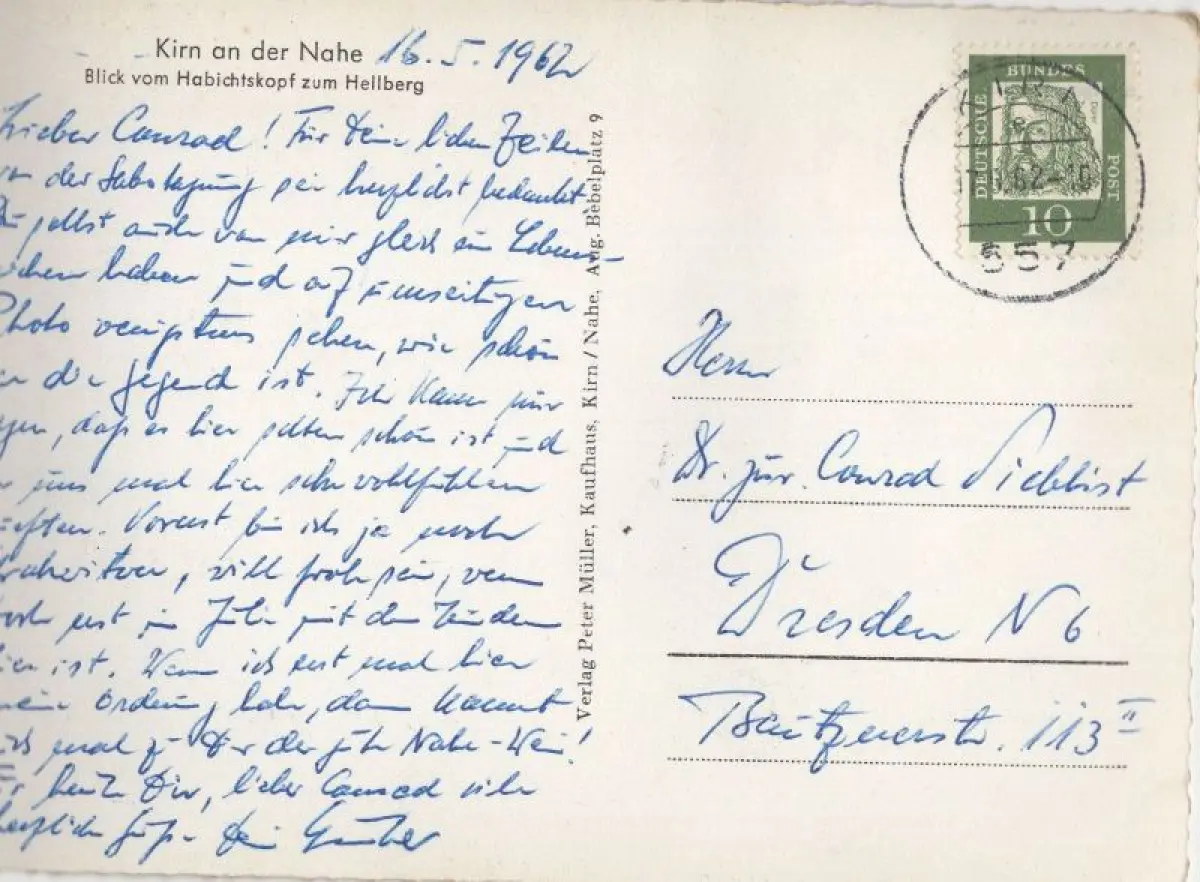 Kirn an der Nahe 16.5.1962
Blick vom Habichtskopf zum Hellberg
Lieber Conrad! Für Deine lieben Zeilen
von der sei herzlichst bedankt
Du sollst auch von mir gleich ein Lebens-
zeichen haben und auf umseitigem
Photo wenigstens sehen, wie schön
die Gegend ist. Ich kann nur
sagen, daß es hier selten schön ist und
uns mal hier sehr wohlfühlen
dürften. Vorerst bin ich ja noch
Strohwitwer, will froh sein, wenn
erst im Juli mit den Kindern
hier ist. Wenn ich erst mal hier
meine Ordnung habe, dann kommt
auch mal zu Dir der gute Nahe-Wein!
Für heute Dir, lieber Conrad viele
herzliche Grüße Dein Günther
Verlag Peter Müller, Kaufhaus, Kirn/Nahe, Aug. Bebelplatz 9
DEUTSCHE BUNDES POST
Dürer
10
KIRN
62-10
657
Herrn
Dr. jur. Conrad Sieblist
Dresden N 6
Bautzenerstr. 113 II